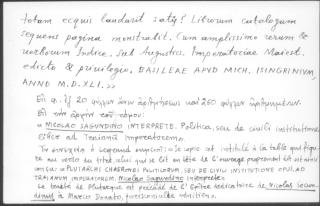 totam ecquis laudarit satis? Librorum catalogum
sequens pagina monstrabit. Cum amplissimo rerum &
verborum Indice. Sub Augustiss. Imperatoriae Maiest.
edicto & privilegio. BASILEAE APVD MICH. ISINGRINIVM,
ANNO M.D.XLI. >>
20 φύλλων ἄνευ ἀριθμήσεως καὶ 250 φύλλων
Εἰς τὴν ἀρχὴν τοῦ
NICOLAO SAGUNDINO INTERPRETE. Politica, seu de civili institutione
ad Traianum Imperatorem.
ce sujet est intitulé à la table qui figure
au verso du titre, celui qui se lit en tête de l'ouvrage proprement dit est ainsi
conçu: PLUTARCHI CHAERONEI POLITICORUM, SEU DE CIVILI INSTITUTIONE OPUS, AD
TRAIANUM IMPERATOREM, Nicolao Sagundino interprete.
Le traité de Plutarque est précédé de l'Epître dédicatoire de Nicolas Secun-
dinus à Marco Donato,